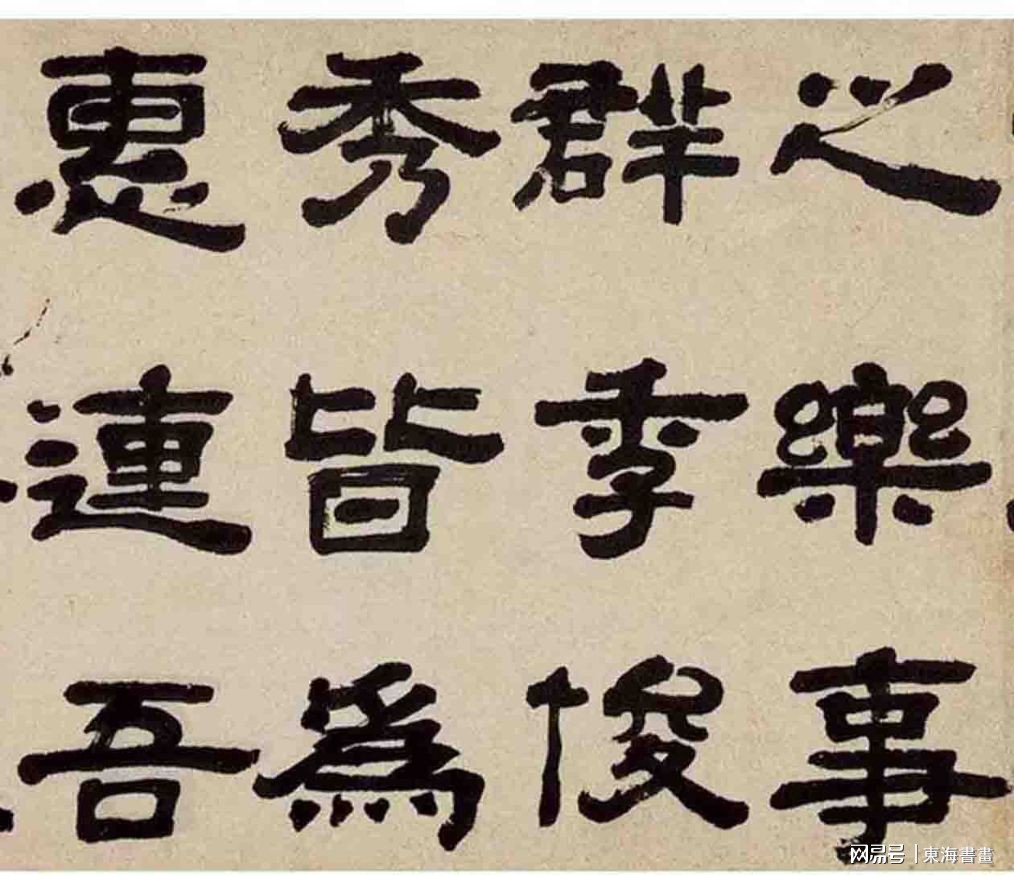 之樂事
群季俊
秀皆為
惠連吾
网易号 | 東海書畫